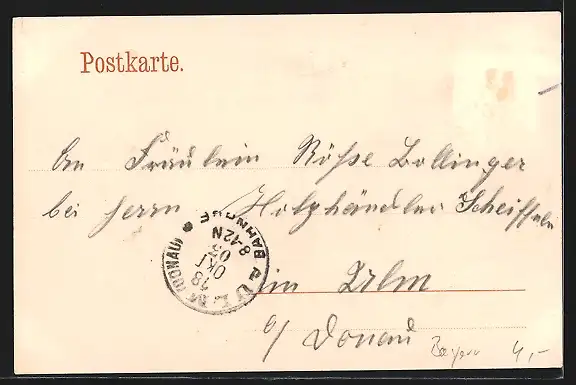 Postkarte.
An Fräulein Röße Bollinger
bei Herrn Holzhändler Scheiffele
in Ulm
a/ Donau
ULM (DONAU)
BAHNHOF
18 OKT 05
8-12N
Bayern 4,-